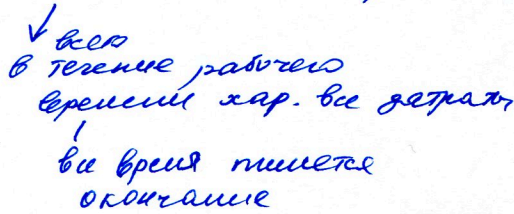 всего
в течение рабочего
времени хар. все затраты
все время пишется
окончание